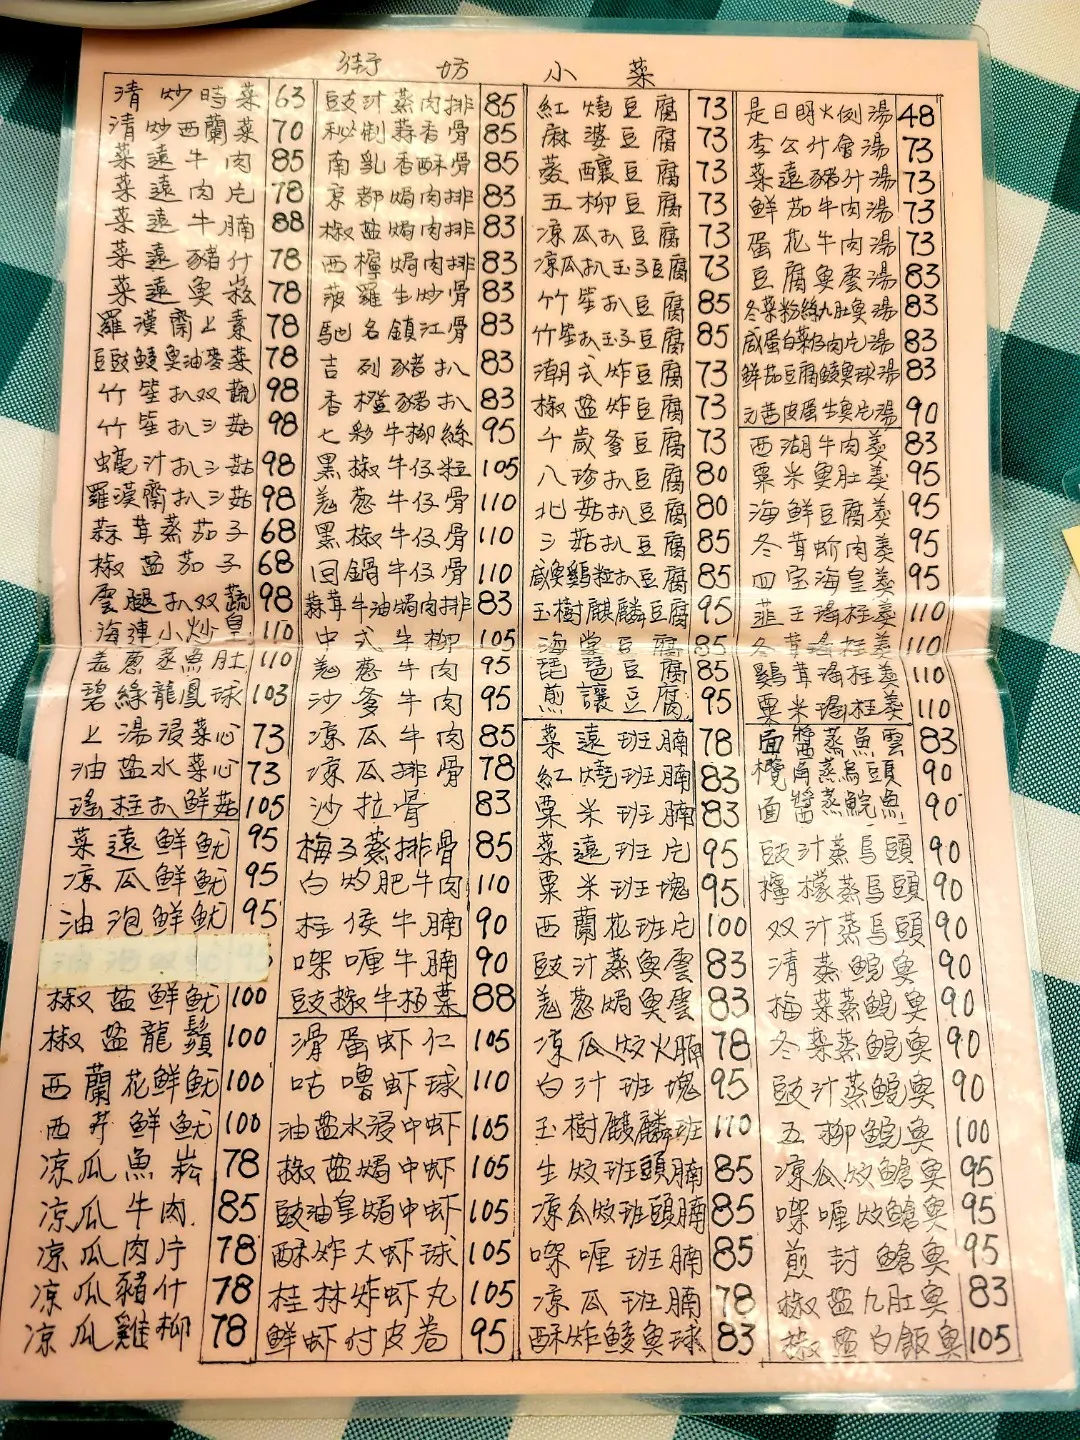 街坊小菜
清炒時菜 63
清炒西蘭菜 70
菜遠牛肉 85
菜遠肉片 78
菜遠牛腩 88
菜遠豬什 78
菜遠魚崧 78
羅漢齋上素 78
豆豉鯪魚油麥菜 78
竹笙扒双蔬 98
竹笙扒三菇 98
蠔汁扒三菇 98
羅漢齋扒三菇 98
蒜茸蒸茄子 68
椒盐茄子 68
雲腿扒双蔬 98
海連小炒皇 110
羌葱蒸魚肚 110
碧綠龍鳳球 103
上湯浸菜心 73
油盐水菜心 73
瑤柱扒鮮菇 105
菜遠鮮魷 95
凉瓜鮮魷 95
油泡鮮魷 95
椒盐鮮魷 100
椒盐龍鬚 100
西蘭花鮮魷 100
西芹鮮魷 100
凉瓜魚崧 78
凉瓜牛肉 85
凉瓜肉片 78
凉瓜豬什 78
凉瓜雞柳 78
豉汁蒸肉排 85
秘制蒜香骨 85
南乳香酥骨 85
京都焗肉排 83
椒盐焗肉排 83
西檸焗肉排 83
菠羅生炒骨 83
馳名鎮江骨 83
吉列豬扒 83
香橙豬扒 83
七彩牛柳絲 95
黑椒牛仔粒 105
羌葱牛仔骨 110
黑椒牛仔骨 110
回鍋牛仔骨 110
蒜茸牛油焗肉排 83
中式牛柳 105
羌葱牛肉 95
沙爹牛肉 95
凉瓜牛肉 85
凉瓜排骨 78
沙拉骨 83
梅子蒸排骨 85
白灼肥牛肉 110
柱侯牛腩 90
咖喱牛腩 90
豉椒牛柏葉 88
滑蛋虾仁 105
咕嚕虾球 110
油盐水浸中虾 105
椒盐焗中虾 105
豉油皇焗中虾 105
酥炸大虾球 105
桂林炸虾丸 105
鮮虾付皮卷 95
紅燒豆腐 73
麻婆豆腐 73
煎釀豆腐 73
五柳豆腐 73
凉瓜扒豆腐 73
凉瓜扒玉子豆腐 73
竹笙扒豆腐 85
竹笙扒玉子豆腐 85
潮式炸豆腐 73
椒盐炸豆腐 73
千歲爹豆腐 73
八珍扒豆腐 80
北菇扒豆腐 80
三菇扒豆腐 85
咸魚鷄粒扒豆腐 85
玉樹麒麟豆腐 95
海棠豆腐 85
琵琶豆腐 85
煎讓豆腐 95
菜遠班腩 78
紅燒班腩 83
粟米班腩 83
菜遠班片 95
粟米班塊 95
西蘭花班片 100
豉汁蒸魚雲 83
羌葱焗魚雲 83
凉瓜炆火腩 78
白汁班塊 95
玉樹麒麟班 110
生炆班頭腩 85
凉瓜炆班頭腩 85
咖喱班腩 85
凉瓜班腩 78
酥炸鯪魚球 83
是日明火例湯 48
李公什會湯 73
菜遠豬什湯 73
鮮茄牛肉湯 73
蛋花牛肉湯 73
豆腐魚雲湯 83
冬菜粉絲九肚魚湯 83
咸蛋白菜仔肉片湯 83
鮮茄豆腐鯪魚球湯 83
芫茜皮蛋生魚片湯 90
西湖牛肉羹 83
粟米魚肚羹 95
海鮮豆腐羹 95
冬茸蚧肉羹 95
四宝海皇羹 95
韮王瑤柱羹 110
冬茸瑤柱羹 110
鷄茸瑤柱羹 110
粟米瑤柱羹 110
面醬蒸魚雲 83
欖角蒸烏頭 90
面醬蒸鯇魚 90
豉汁蒸烏頭 90
檸檬蒸烏頭 90
双汁蒸烏頭 90
清蒸鯇魚 90
梅菜蒸鯇魚 90
冬菜蒸鯇魚 90
豉汁蒸鯇魚 90
五柳鯇魚 100
凉瓜炆鱔魚 95
咖喱炆鱔魚 95
煎封鱔魚 95
椒盐九肚魚 83
椒盐白飯魚 105